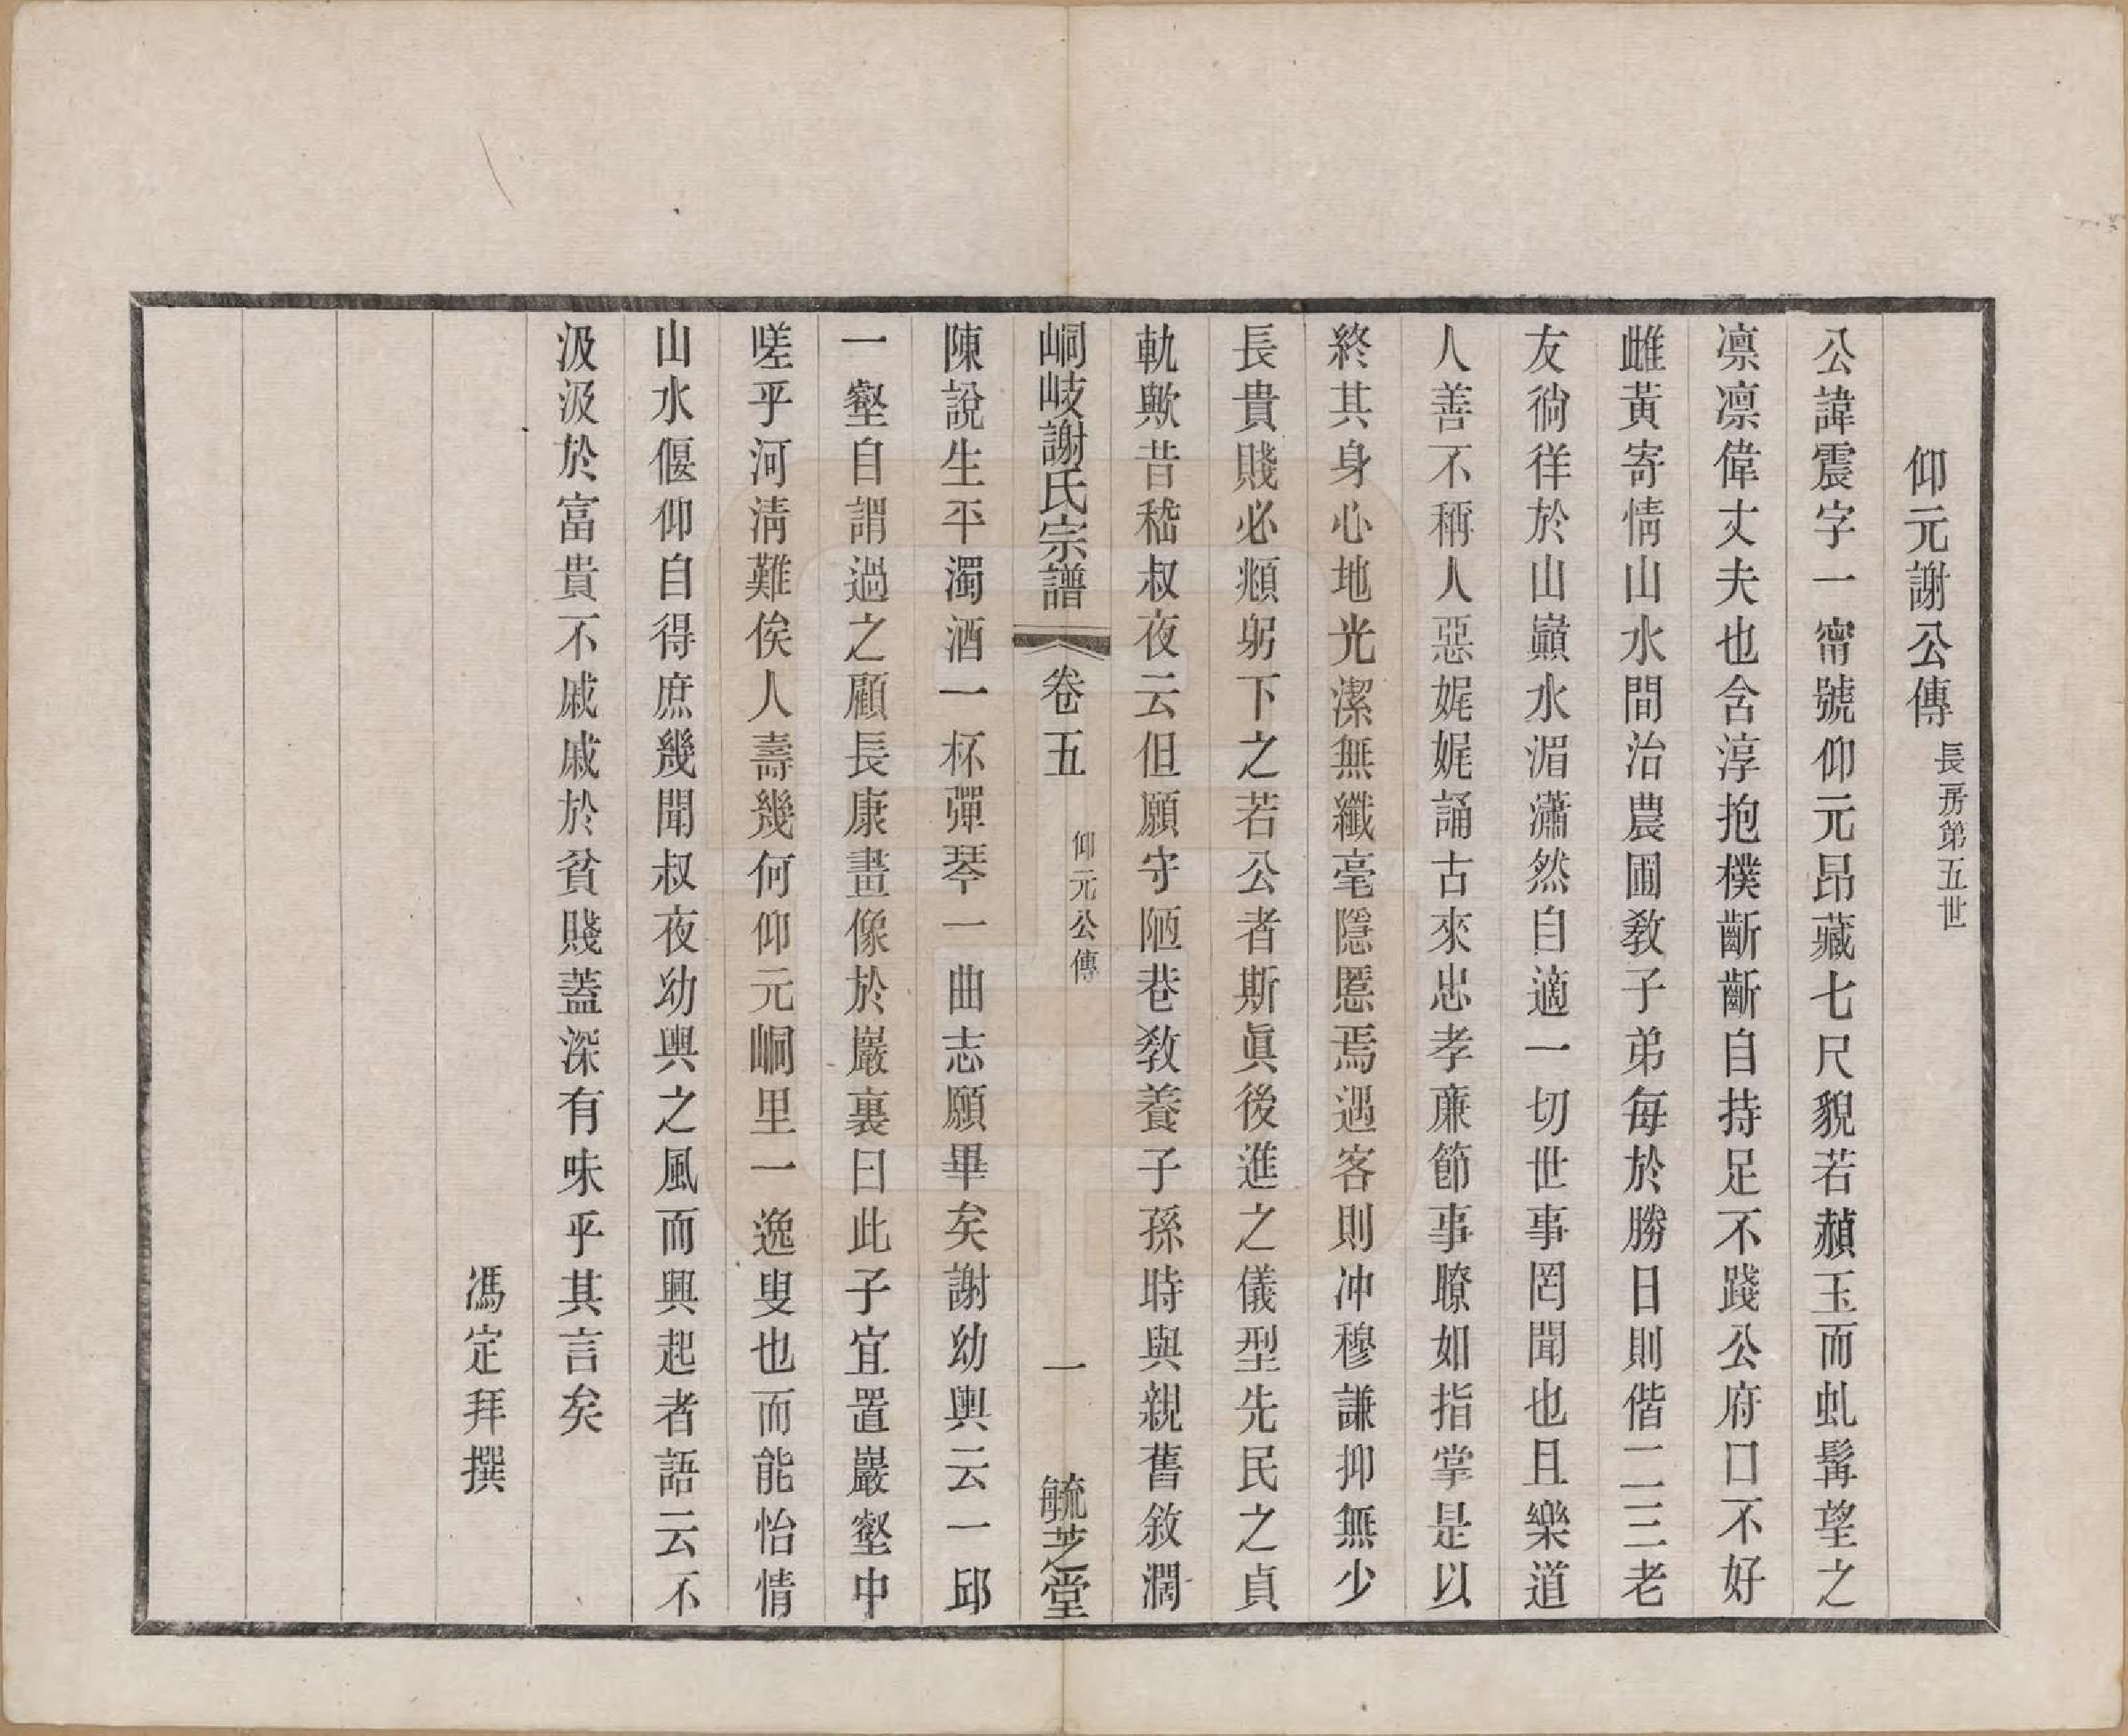 仰元謝公傳 長房第五世
公諱震字一甯號仰元昂藏七尺貌若赬玉而虬髯望之
凛凛偉丈夫也含淳抱樸齗齗自持足不踐公府口不好
雌黃寄情山水間治農圃教子弟每於勝日則偕二三老
友徜徉於山巔水湄瀟然自適一切世事罔聞也且樂道
人善不稱人惡娓娓誦古來忠孝亷節事瞭如指掌是以
終其身心地光潔無纖毫隱慝焉遇客則冲穆謙抑無少
長貴賤必頫躬下之若公者斯眞後進之儀型先民之貞
軌歟昔嵇叔夜云但願守陋巷教養子孫時與親舊敘濶
峒岐謝氏宗譜 卷五 仰元公傳 一 毓芝堂
陳說生平濁酒一杯彈琴一曲志願畢矣謝幼輿云一邱
一壑自謂過之顧長康畫像於巖裏曰此子宜置巖壑中
嗟乎河清難俟人壽幾何仰元峒里一逸叟也而能怡情
山水偃仰自得庶幾聞叔夜幼輿之風而興起者語云不
汲汲於富貴不戚戚於貧賤蓋深有味乎其言矣
馮定拜撰